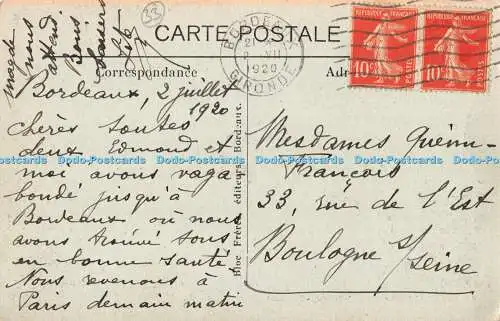 CARTE POSTALE
33
BORDEAUX
21
VII
1920
GIRONDE
REPUBLIQUE FRANÇAISE
10c
POSTES
REPUBLIQUE FRANÇAISE
10c
POSTES
Correspondance
Magde
nous
attend
Bons
Baisers
Bordeaux, 2 juillet
1920
Chères toutes
deux Edmond et
moi avons vaga
bondé jusqu'à
Bordeaux où nous
avons trouvé tous
en bonne santé
Nous revenons à
Paris demain matin
Bloc Frères, éditeurs, Bordeaux.
Mesdames
François
33, rue de l'Est
Boulogne s/Seine
Dodo-Postcards Dodo-Postcards Dodo-Postcards Dodo-Postcards Dodo-Postcards